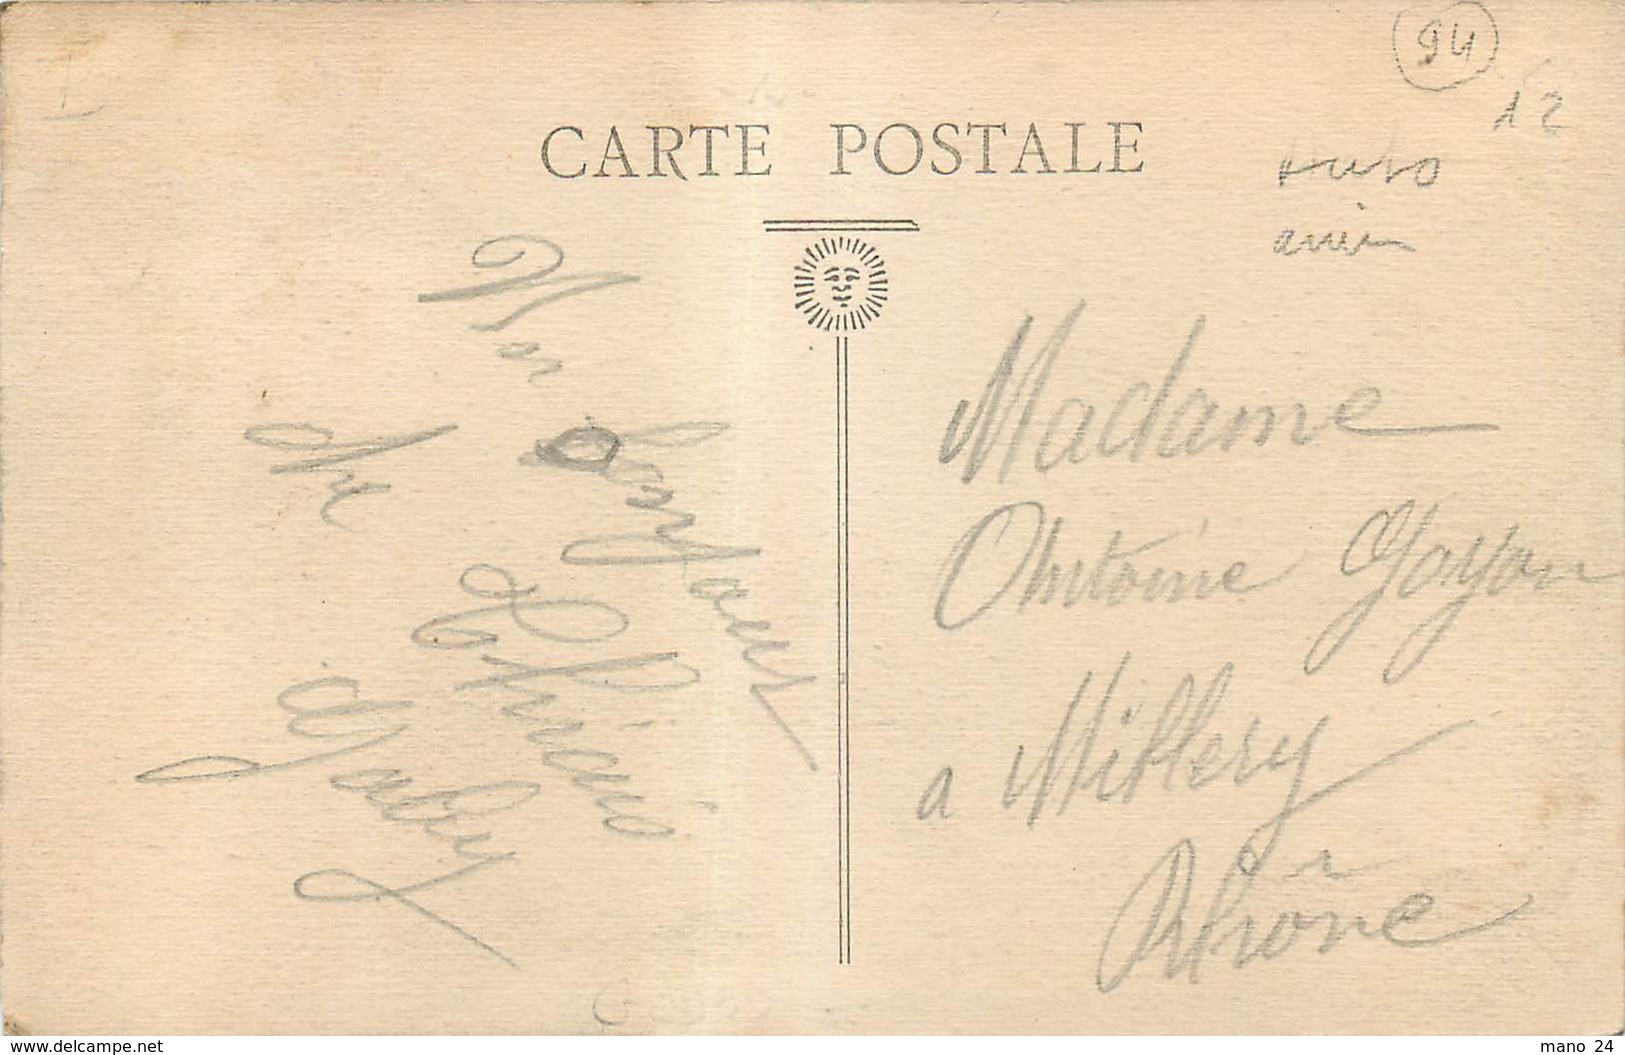 94
12
CARTE POSTALE
Un bonjour
de Thiais
Gaby
Madame
Antoine Goyon
a Millery
Rhône
www.delcampe.net
mano 24